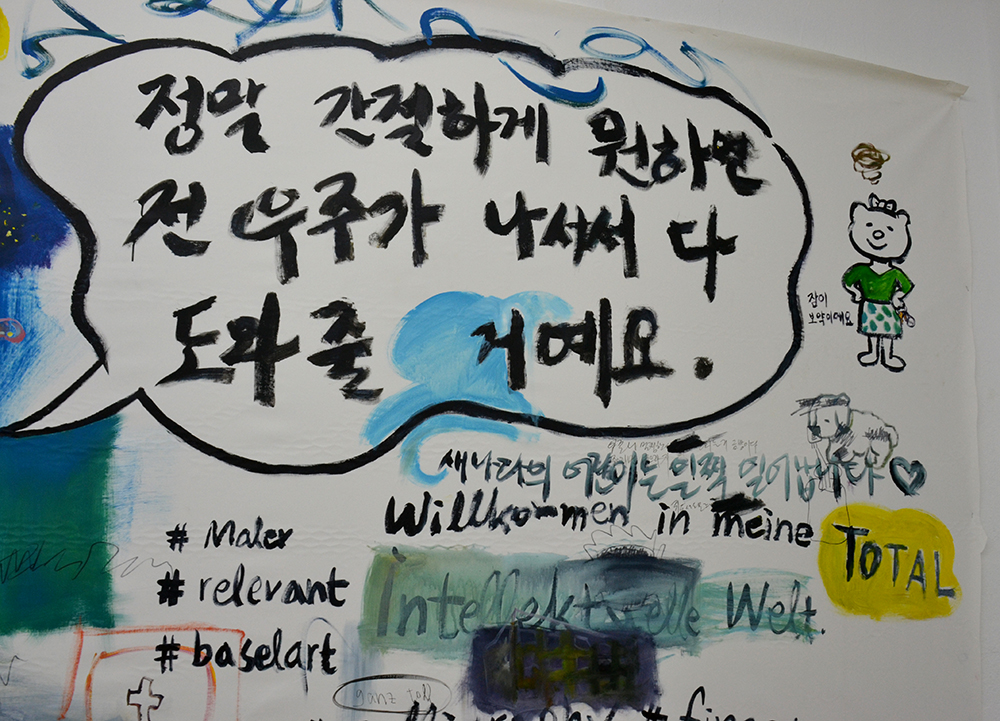 정말 간절하게 원하면
전 우주가 나서서 다
도와 줄 거예요.
잠이
보약이예요
새나라의 어린이는 일찍 일어납니다
Willkommen in meine
TOTAL
Intellektuelle Welt.
# Maler
# relevant
# baselart
ganz toll